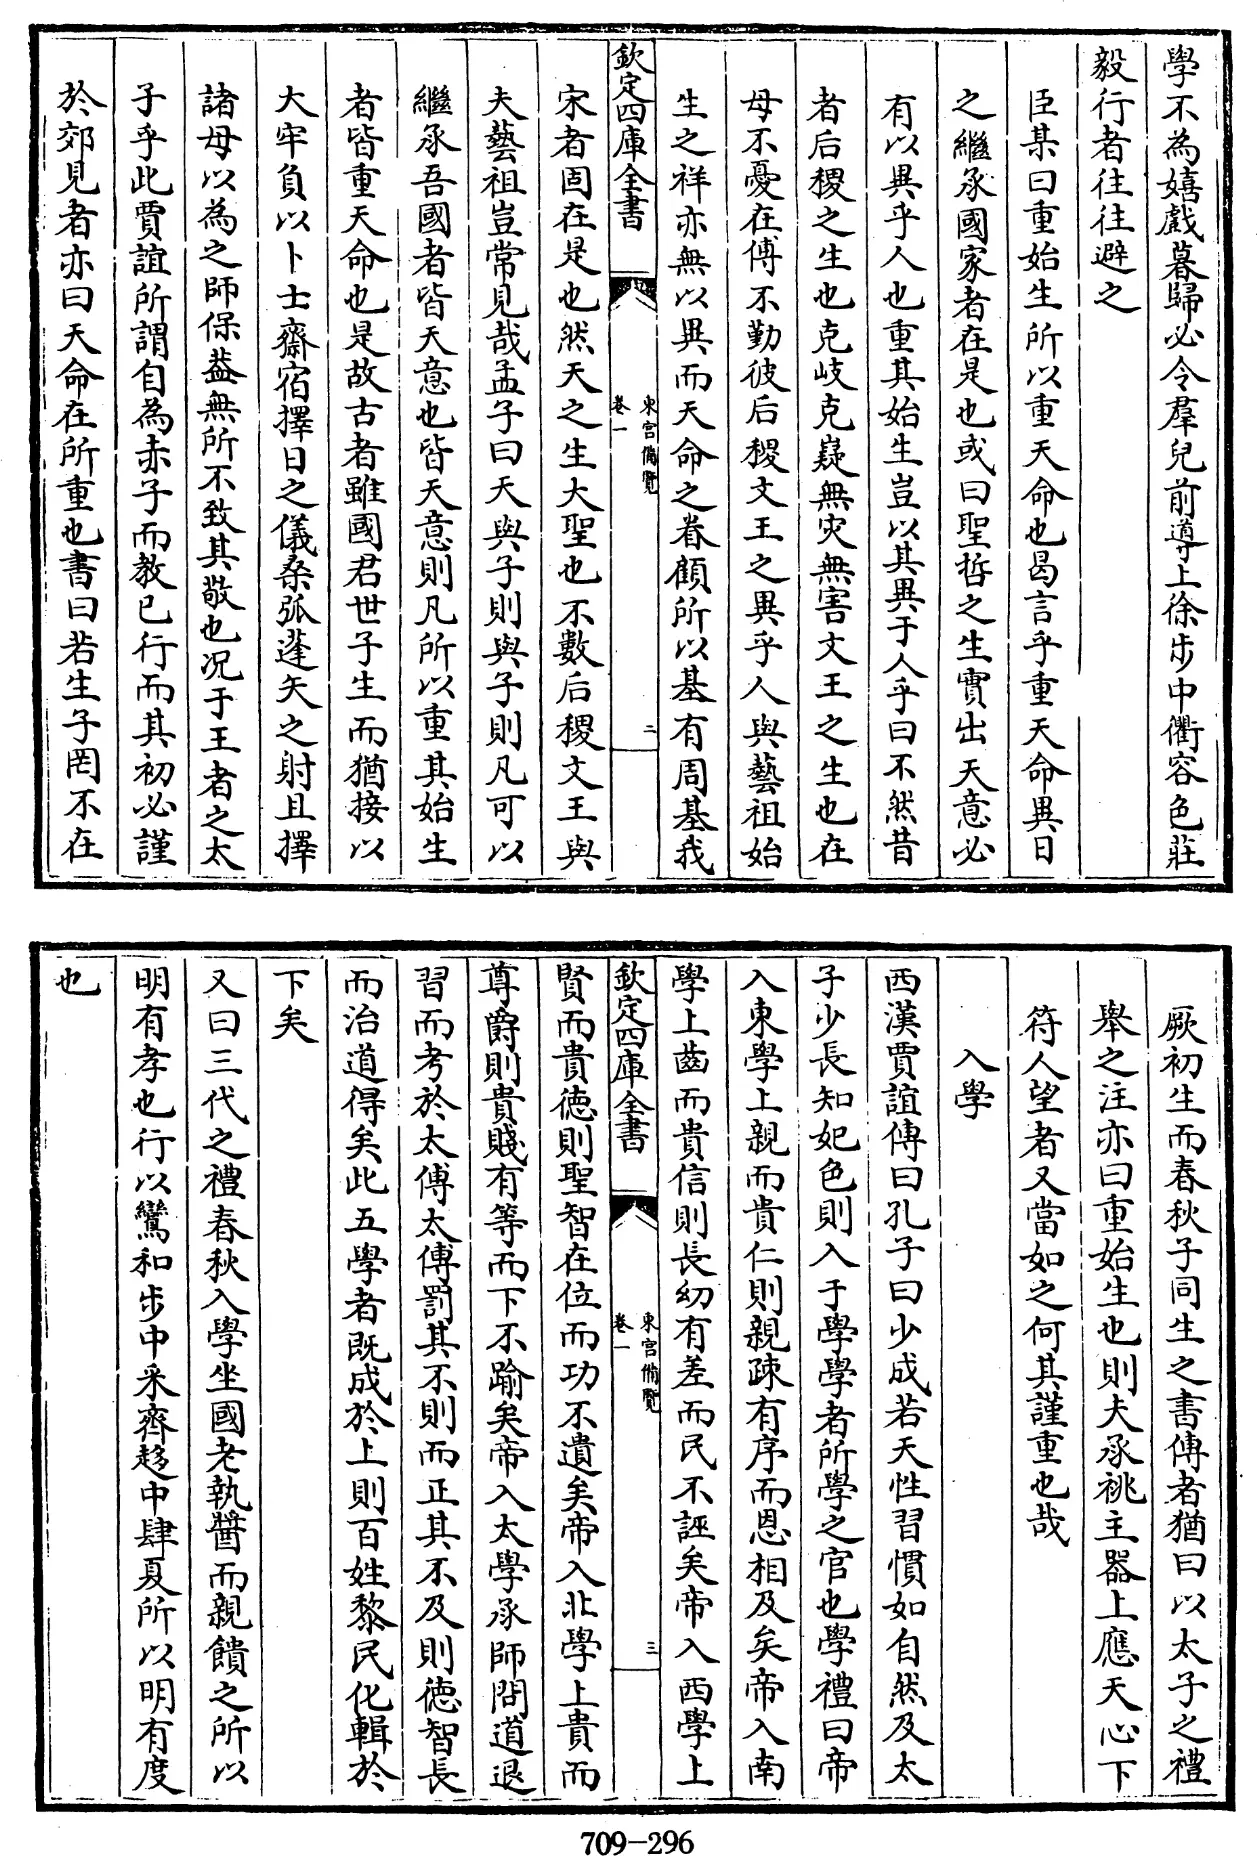 學不為嬉戲暮歸必令羣兒前導上徐步中衢容色莊
毅行者往往避之
臣某曰重始生所以重天命也曷言乎重天命異日
之繼承國家者在是也或曰聖哲之生實出天意必
有以異乎人也重其始生豈以其異于人乎曰不然昔
者后稷之生也克岐克嶷無災無害文王之生也在
母不憂在傅不勤彼后稷文王之異乎人與藝祖始
生之祥亦無以異而天命之眷顧所以基有周基我
欽定四庫全書
東宮備覽
卷一
二
宋者固在是也然天之生大聖也不數后稷文王與
夫藝祖豈常見哉孟子曰天與子則與子則凡可以
繼承吾國者皆天意也皆天意則凡所以重其始生
者皆重天命也是故古者雖國君世子生而猶接以
大牢負以卜士齋宿擇日之儀桑弧蓬矢之射且擇
諸母以為之師保葢無所不致其敬也况于王者之太
子乎此賈誼所謂自為赤子而教已行而其初必謹
於郊見者亦曰天命在所重也書曰若生子罔不在
厥初生而春秋子同生之書傳者猶曰以太子之禮
舉之注亦曰重始生也則夫承祧主器上應天心下
符人望者又當如之何其謹重也哉
入學
西漢賈誼傳曰孔子曰少成若天性習慣如自然及太
子少長知妃色則入于學學者所學之官也學禮曰帝
入東學上親而貴仁則親疎有序而恩相及矣帝入南
學上齒而貴信則長幼有差而民不誣矣帝入西學上
欽定四庫全書
東宮備覽
卷一
三
賢而貴徳則聖智在位而功不遺矣帝入北學上貴而
尊爵則貴賤有等而下不踰矣帝入太學承師問道退
習而考於太傅太傅罰其不則而正其不及則徳智長
而治道得矣此五學者既成於上則百姓黎民化輯於
下矣
又曰三代之禮春秋入學坐國老執醬而親饋之所以
明有孝也行以鸞和步中采齊趨中肆夏所以明有度
也
709-296